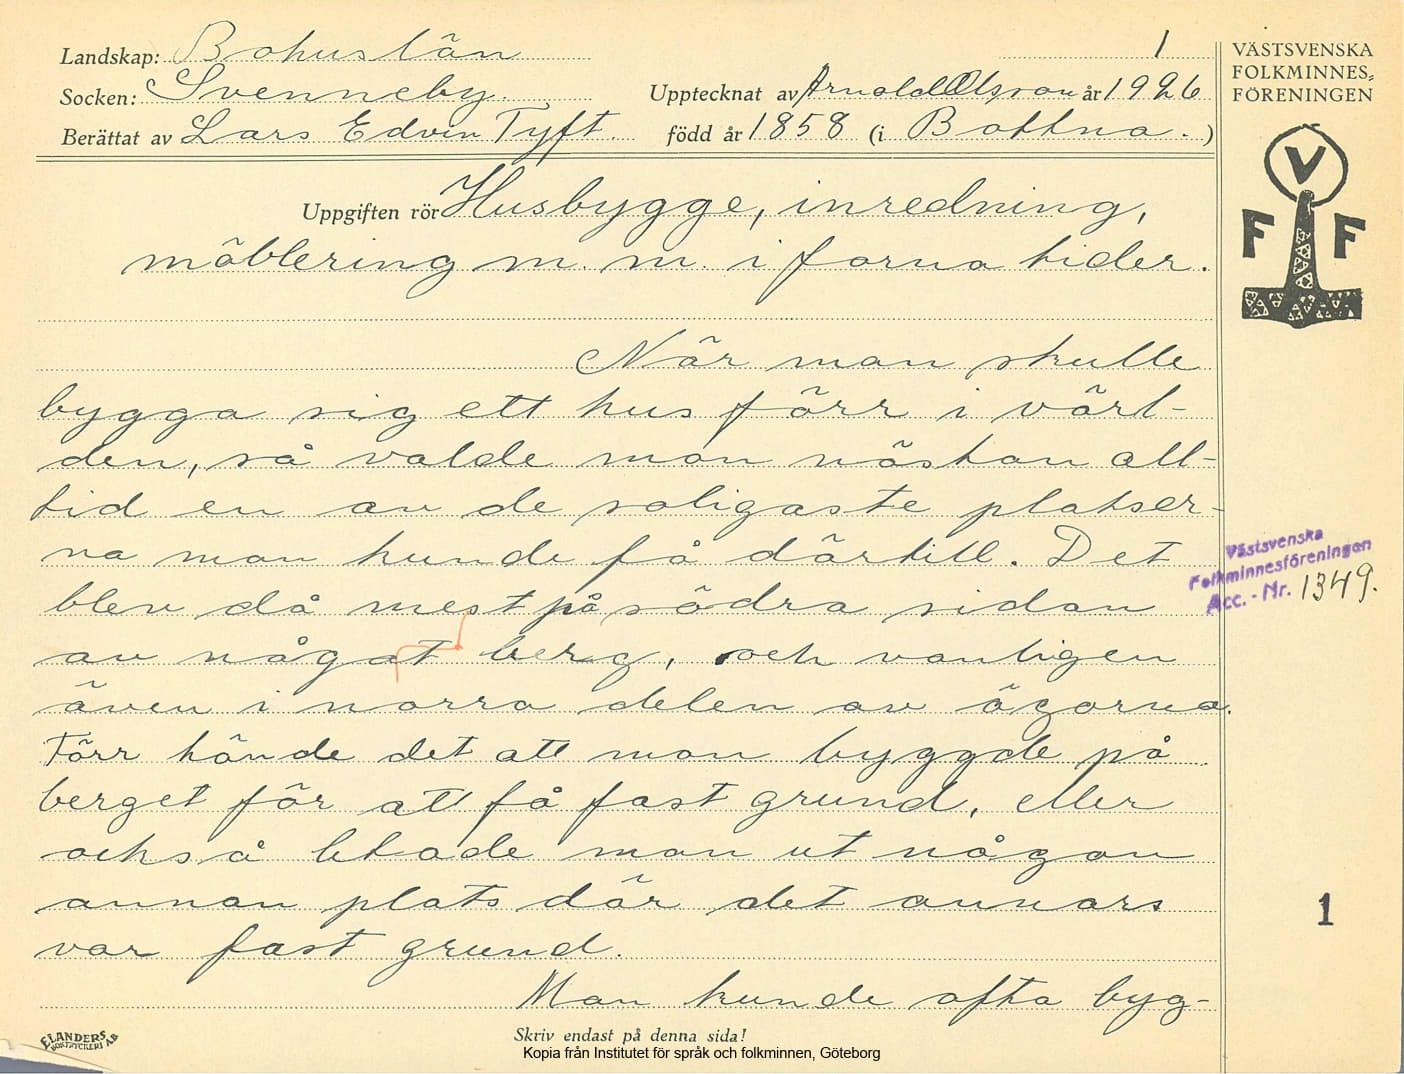 Landskap: Bohuslän
1
Socken: Svenneby.
Upptecknat av Arnold Olsson år 1926
Berättat av Lars Edvin Tyft.
född år 1858 (i Bottna.)
Uppgiften rör Husbygge, inredning,
möblering m. m. i forna tider.
När man skulle
bygga sig ett hus förr i värl-
den, så valde man nästan all-
tid en av de soligaste platser-
na man kunde få därtill. Det
blev då mest på södra sidan
av något berg, och vanligen
även i norra delen av ägorna.
Förr hände det att man byggde på
berget för att få fast grund, eller
också letade man ut någon
annan plats där det annars
var fast grund.
Man kunde ofta byg-
Skriv endast på denna sida!
Kopia från Institutet för språk och folkminnen, Göteborg
ELANDERS
BOKTRYCKERI AB
VÄSTSVENSKA
FOLKMINNES=
FÖRENINGEN
V
F F
Västsvenska
Folkminnesföreningen
Acc. - Nr. 1349.
1